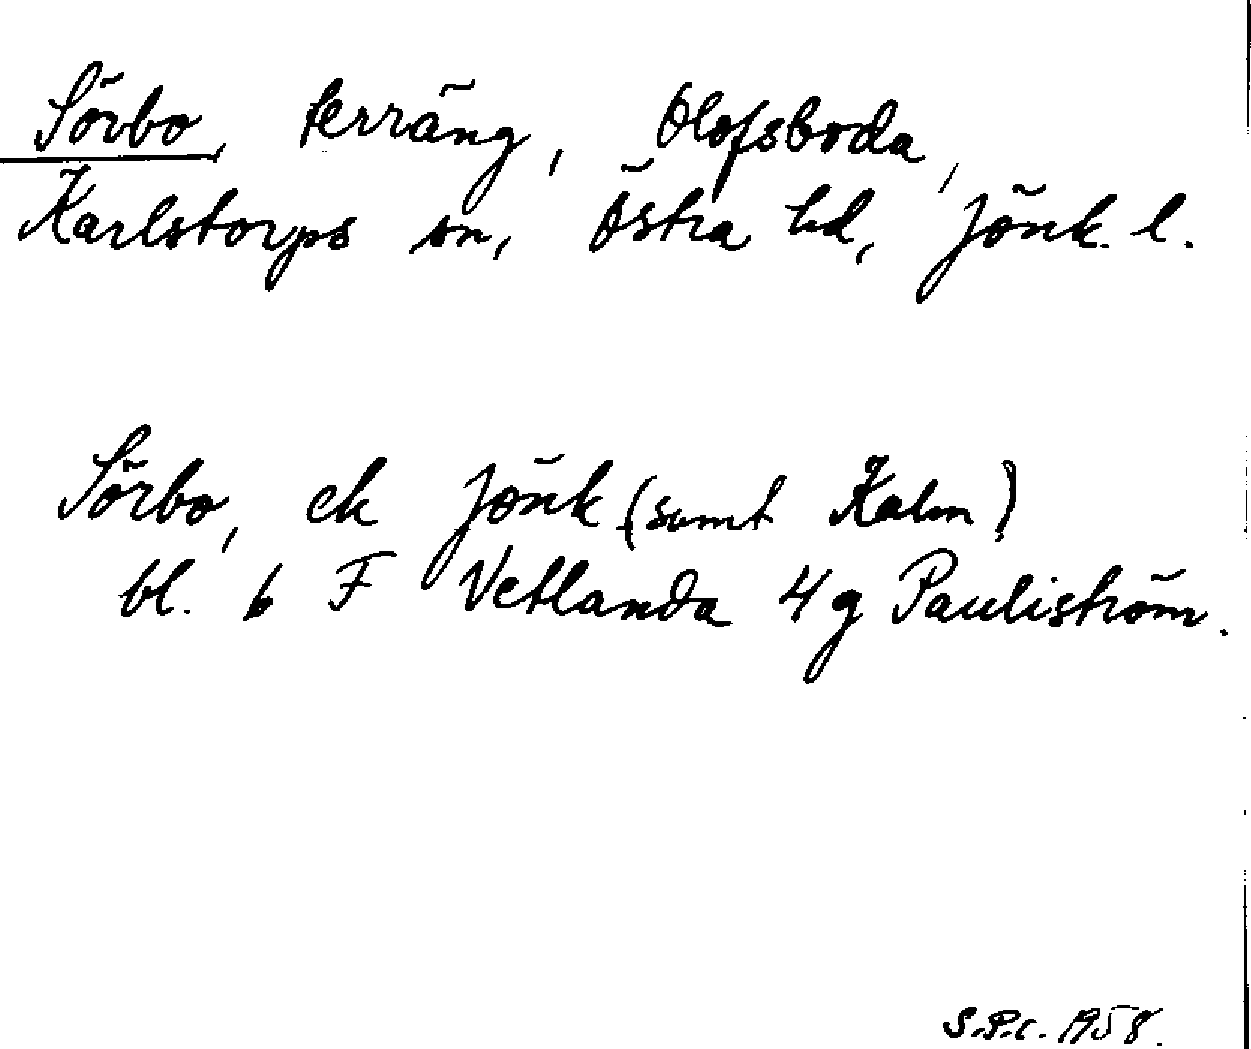 Sörbo, terräng, Olofsboda,
Karlstorps sn, Östra hd, Jönk. l.
Sörbo, ek Jönk (samt Kalm)
bl. 6 F Vetlanda 4 g Pauliström.
S.P.C. 1958.